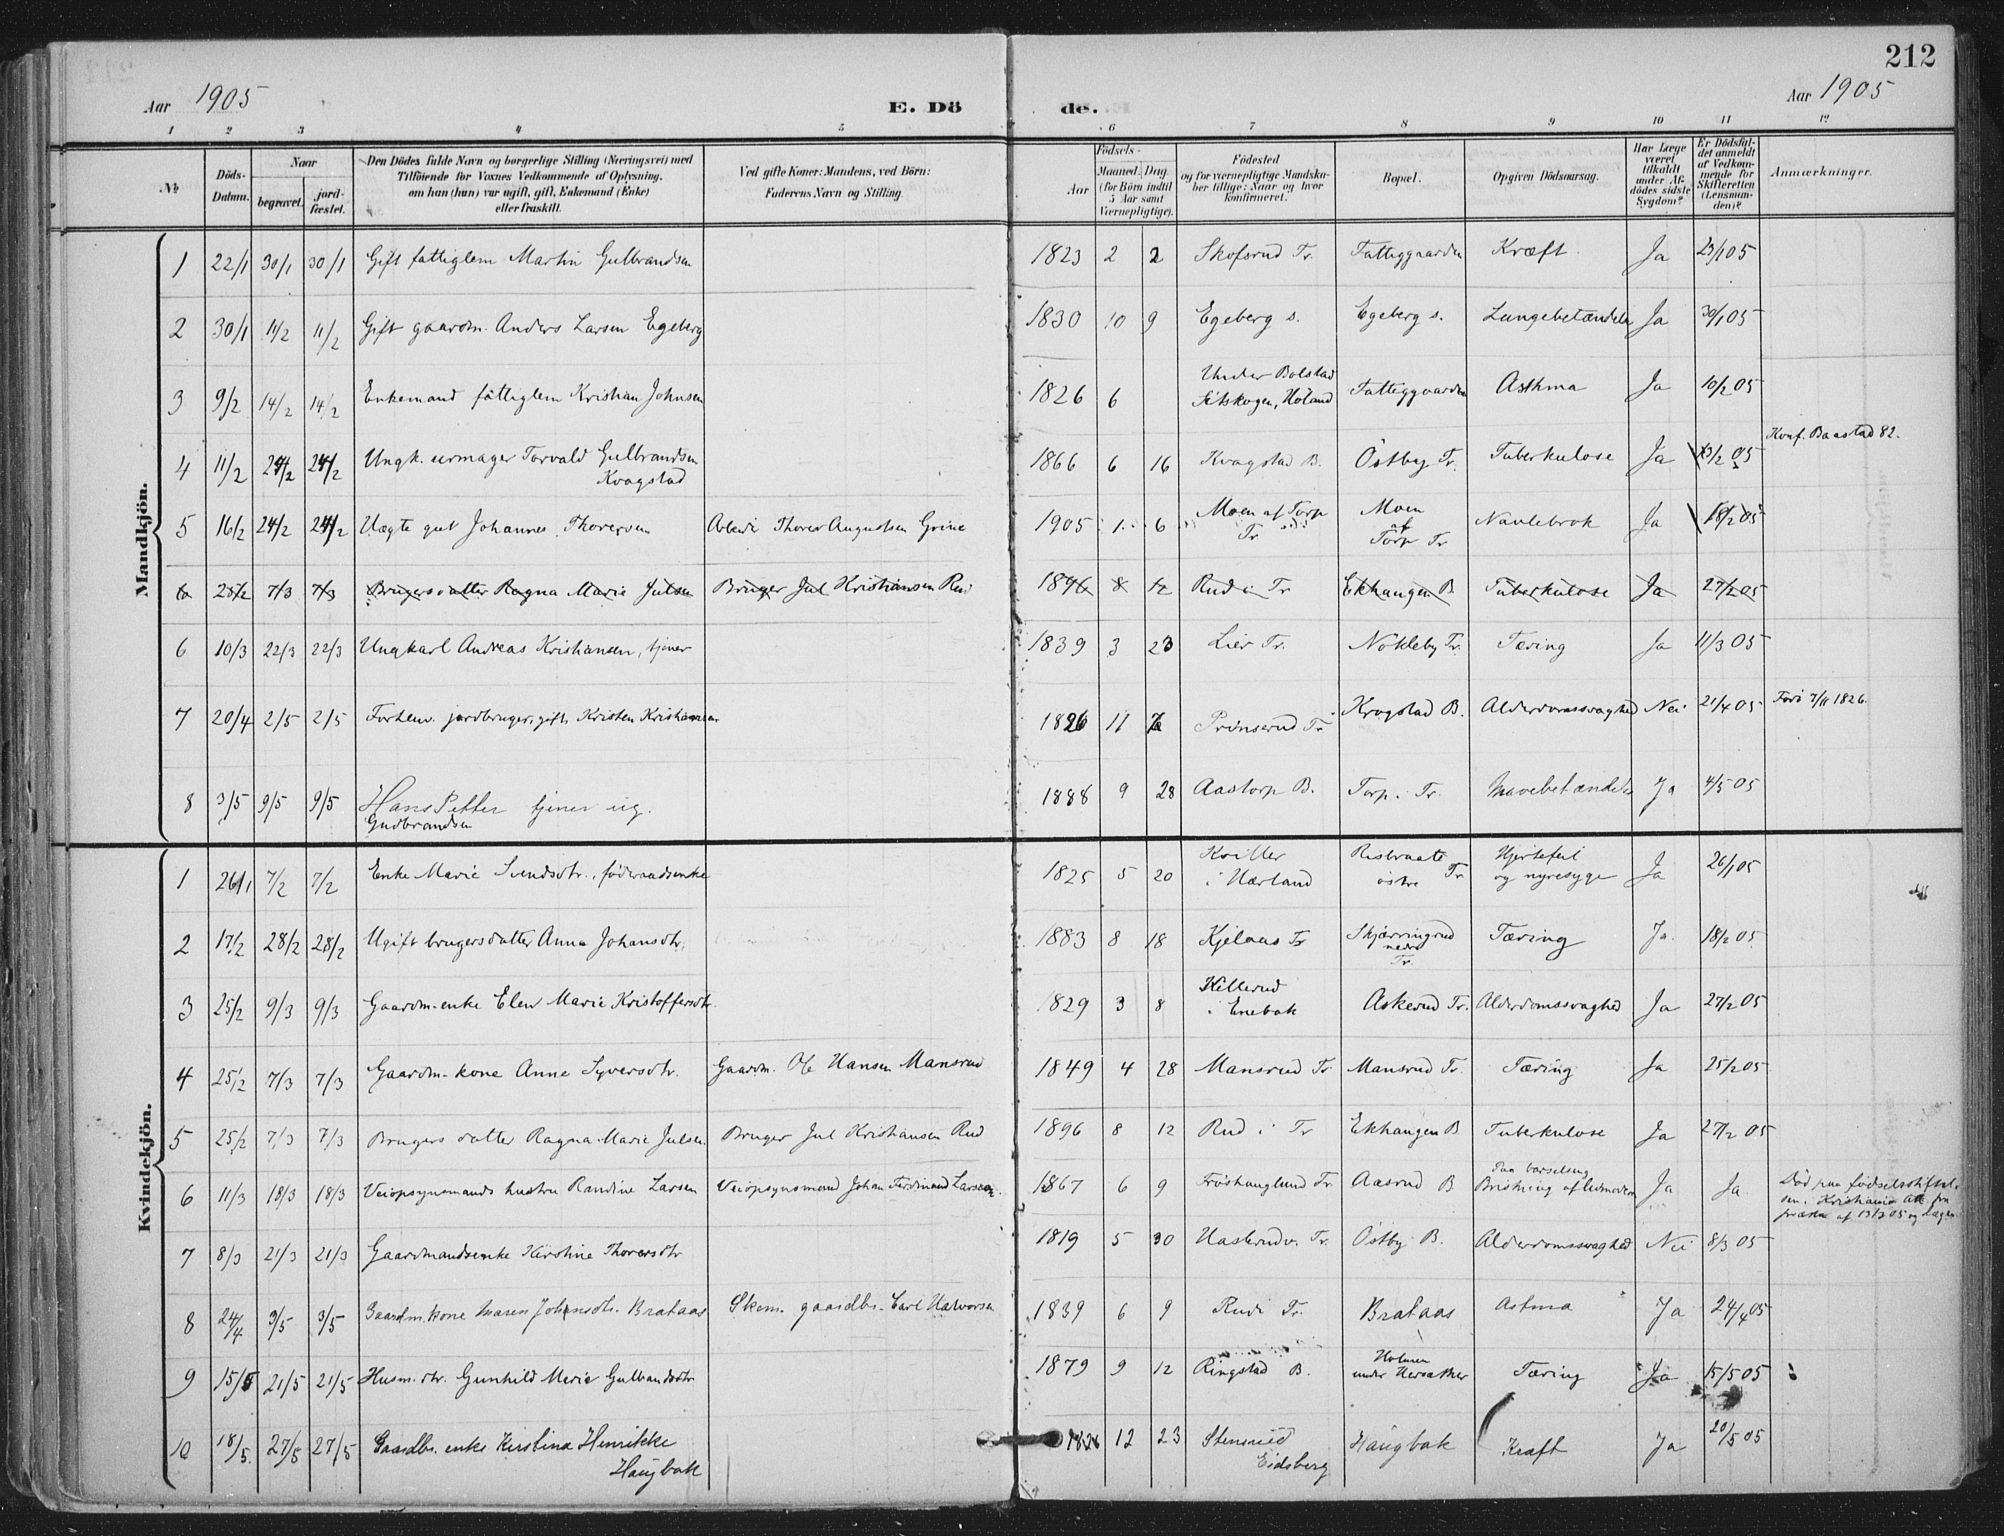 212
Aar 1905
E. Dö
de.
Aar 1905
1 2 3 4 5 6 7 8 9 10 11 12
No
Döds-Datum.
Naar
begravet.
jord-fæstet.
Den Dödes fulde Navn og borgerlige Stilling (Næringsvei) med
Tilföiende for Voxnes Vedkommende af Oplysning,
om han (hun) var ugift, gift, Enkemand (Enke)
eller fraskilt.
Ved gifte Koner: Mandens, ved Börn:
Faderens Navn og Stilling.
Födsels-
Aar
Maaned. Dag
(for Börn indtil
5 Aar samt
Værnepligtige).
Födested
og for værnepligtige Mandska-
ber tillige: Naar og hvor
konfirmeret.
Bopæl.
Opgiven Dödsaarsag.
Har Læge
været
tilkaldt
under Af-
dödes sidste
Sygdom?
Er Dödsfal-
det anmeldt
af Vedkom-
mende for
Skifteretten
(Lensman-
den)?
Anmærkninger.
Mandkjön.
1 22/1 30/1 30/1 Gift fattiglem Martin Gulbrandsen 1823 2 2 Skofsrud Tr. Fattiggaarden Kræft. Ja 23/1 05
2 30/1 11/2 11/2 Gift gaardm. Anders Larsen Egeberg 1830 10 9 Egeberg s. Egeberg s. Lungebetændelse Ja 30/1 05
3 9/2 14/2 14/2 Enkemand fattiglem Kristian Johnsen 1826 6 Under Bolstad Setskogen, Höland Fattiggaarden Asthma Ja 10/2 05
4 11/2 24/2 24/2 Ungk. urmager Torvald Gulbrandsen Kragstad 1866 6 16 Kragstad B. Östby Tr. Tuberkulose Ja 13/2 05 Konf. Baastad 82.
5 16/2 24/2 24/2 Uægte gut Johannes Thoresen Arbeider Thorer Augustsen Grine 1905 1 6 Moen af Torp Tr Moen af Torp Tr Navlebrok Ja 18/2 05
6 25/2 7/3 7/3 Brugersdatter Ragna Marie Julsen Bruger Jul Kristiansen Rud 1896 8 12 Rud i Tr Ekhaugen B Tuberkulose Ja 27/2 05
6 10/3 22/3 22/3 Ungkarl Andreas Kristiansen, tjener 1839 3 23 Lier Tr. Nökleby Tr. Tæring Ja 11/3 05
7 20/4 2/5 2/5 Forhenv. jordbruger, gift, Kristen Kristiansen 1826 11 7 Prinserud Tr Kragstad B. Alderdomssvaghed Nei 21/4 05 Född 7/11 1826.
8 3/5 9/5 9/5 Hans Petter Gudbrandsen tjener ug. 1888 9 28 Aastorp B. Torp i Tr. Mavebetændelse Ja 4/5 05
Kvindekjön.
1 26/1 7/2 7/2 Enke Marie Svendsdtr., föderaadsenke 1825 5 20 Kviller i Hærland Risbraate östre Tr Hjertefeil og nyresyge Ja 26/1 05
2 17/2 28/2 28/2 Ugift brugersdatter Anna Johansdtr. 1883 8 18 Kjelaas Tr Skjærringrud nedre Tr. Tæring Ja. 18/2 05
3 25/2 9/3 9/3 Gaardm-enke Elen Marie Kristoffersdtr. 1829 3 8 Killerud i Enebak Askerud Tr. Alderdomssvaghed Ja 27/2 05
4 25/2 7/3 7/3 Gaardm-kone Anne Syversdtr. Gaardm. Ole Hansen Mansrud 1849 4 28 Mansrud Tr Mansrud Tr. Tæring Ja 25/2 05
5 25/2 7/3 7/3 Brugersdatter Ragna Marie Julsen. Bruger Jul Kristiansen Rud 1896 8 12 Rud i Tr Ekhaugen B Tuberkulose Ja 27/2 05
6 11/3 18/3 18/3 Veiopsynsmands hustru Randine Larsen Veiopsynsmand Johan Ferdinand Larsen. 1867 6 9 Fröshauglund Tr. Aasrud B Paa barselseng Bristning af livmoderen Ja Ja. Död paa födselsstiftel-
sen i Kristiania Att. fra
præsten af 13/3 05 og Lægen
7 8/3 21/3 21/3 Gaardmandsenke Kirstine Thoresdtr 1819 5 30 Haslerud v. Tr. Östby B. Alderdomssvaghed Nei 8/3 05
8 24/4 3/5 3/5 Gaardm. kone Maren Johansdtr. Brataas Skom. gaardbr. Carl Halvorsen 1839 6 9 Rud i Tr. Brataas Astma Ja 24/4 05
9 15/5 21/5 21/5 Husm. dtr. Gunhild Marie Gulbrandsdtr 1879 9 12 Ringstad B. Holmen under Hersæther Tæring Ja 15/5 05
10 18/5. 27/5 27/5 Gaardbr. enke Kirstina Henrikke Haugbak 1826 12 23 Stensrud Eidsberg Haugbak Kræft Ja 20/5 05